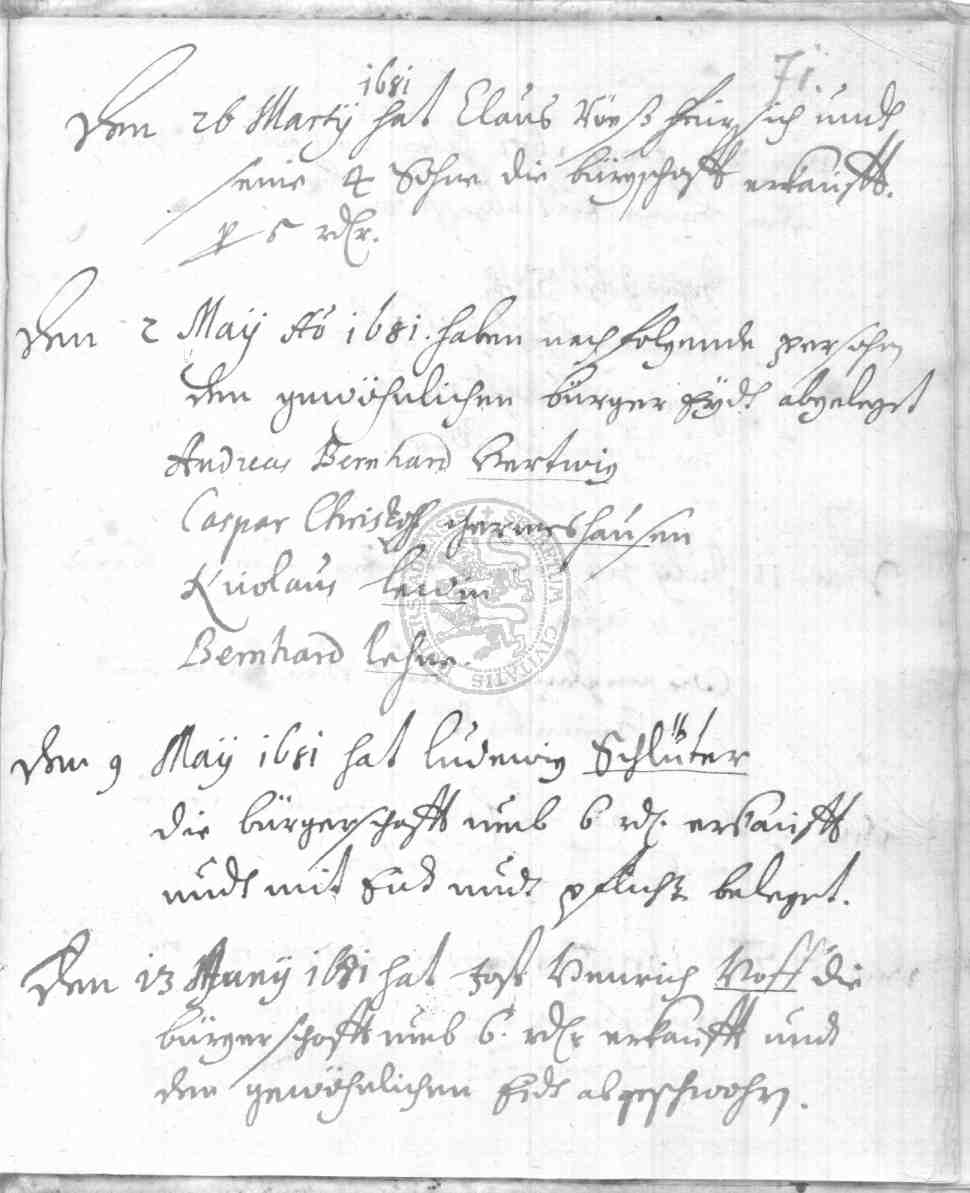 71.
1681
Den 26 Martij hat Claus Voeß für sich undt
seine 4 Söhne die bürgschafft erkaufft.
p 5 rdlr.
Den 2 Maij Ao 1681. haben nachfolgende persohn
den gewöhnlichen bürger Eydt abgeleget
Andreas Bernhard Hertwig
Caspar Christoff Hermeshausen
Nicolaus
Bernhard Lehne.
Den 9 Maij 1681 hat Ludewig Schlüter
die bürgerschafft umb 6 rdl. erkaufft
undt mit Eid undt pflicht beleget.
Den 13 Junij 1681 hat Jost Henrich Voss die
bürgerschafft umb 6. rdlr erkaufft undt
den gewöhnlichen Eidt abgeschwohrn.
SENATUS CIVITATIS